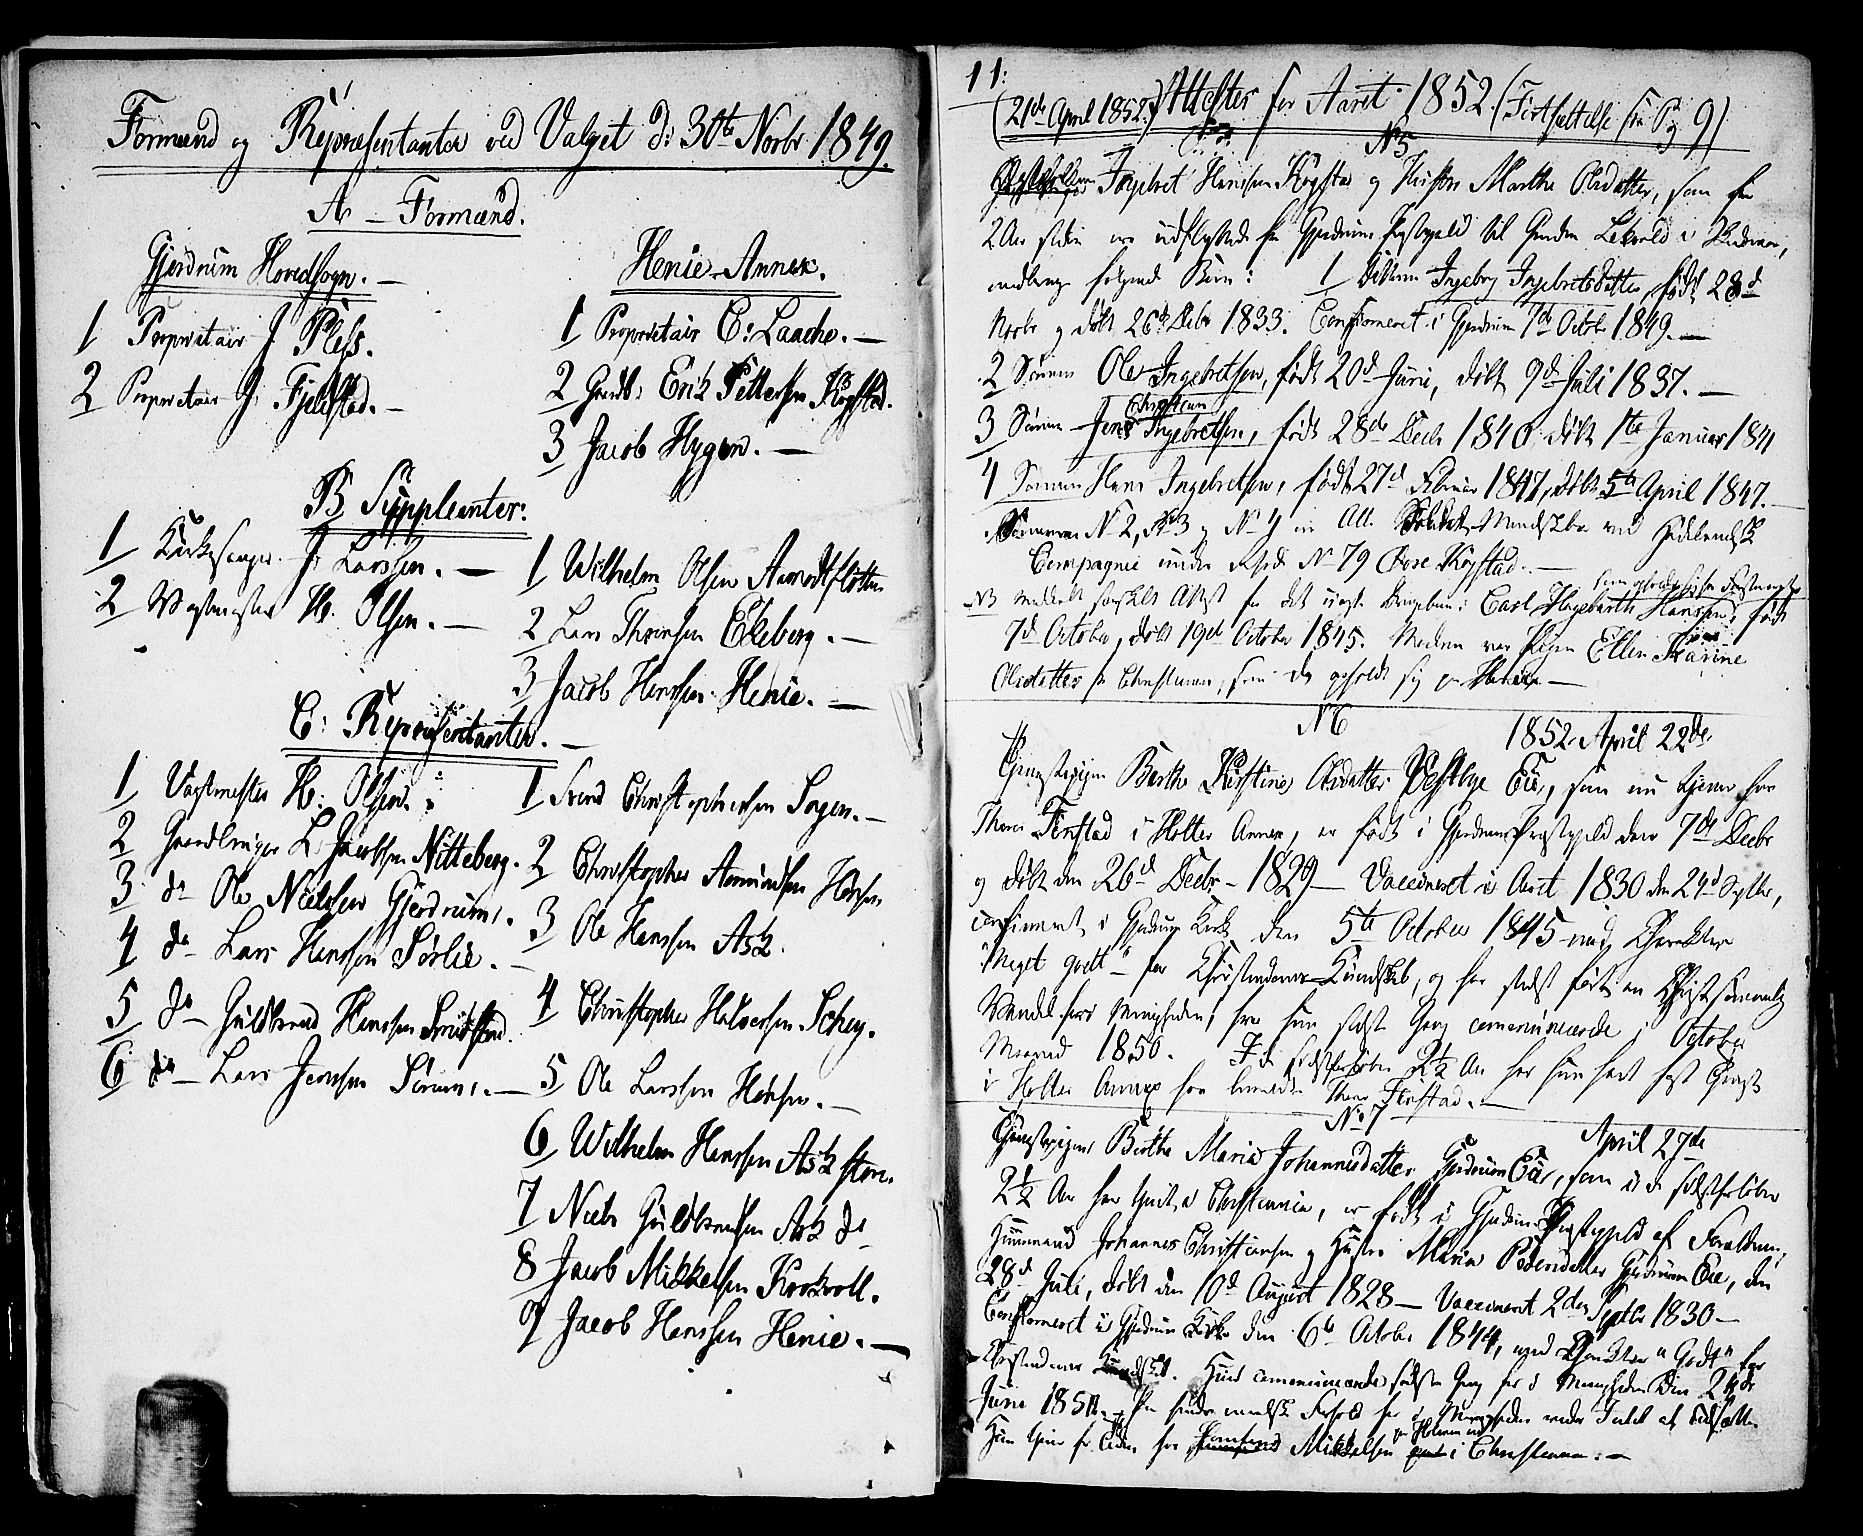 Formænd og Repræsentanter ved Valget d: 30te Novbr 1849.
A – Formænd.
Gjerdrum Hovedsogn. –
1 Proprietair J. Pless.
2 Proprietair J. Fjeldstad. –
Henie Annex.
1 Proprietair C: Laache. –
2 Gaardb: Erik Pettersen Kogstad.
3 Jacob Hygen. –
B Suppleanter:
1 Kirkesanger J: Larssen. –
2 Vagtmester H. Olsen. –
1 Wilhelm Olsen Amodtslotten
2 Lars Thorersen Ekeberg. –
3 Jacob Hanssen Henie. –
C: Repræsentanter. –
1 Vagtmester H: Olsen.
2 Gaardbruger L Jacobsen Nitteberg.
3 do Ole Nielsen Gjerdrum.
4 do Lars Hanssen Sørlie. –
5 do Guldbrand Hanssen
6 do – Lars Jensen Sørum. –
1 Svend Christophersen Sogen. –
2 Christopher Amundsen
3 Ole Hanssen Ask.
4 Christopher Halvorsen Schey.
5 Ole Larssen –
6 Wilhelm Hanssen Ask
7 Niels Guldbrandsen Ask do
8 Jacob Mikkelsen Krokvoll.
9 Jacob Hanssen Henie. –
11:
(21de April 1852.) Attester for Aaret 1852 (Fortsættelse fra Pag 9)
No 5
Ingebret Hanssen Kogstad og Hustru Marthe Olsdatter, som for
2 Aar siden ere udflyttede fra Gjerdrums Præstegjeld til Gaarden i
medbragte følgende Børn: 1 Datteren Ingeborg Ingebretsdatter, født 28de
Novbr og døbt 26de Decbr 1833. Confirmeret i Gjerdrum 7de Octobr 1849. –
2 Sønnen Ole Ingebretsen, født 20de Juni, døbt 9de Juli 1837. –
3 Sønnen Jens Christian Ingebretsen, født 28de Decbr 1840 døbt 1te Januar 1841
4 Sønnen Hans Ingebretsen, født 27de Februar 1847, døbt 5te April 1847. –
Sønnerne No 2, No 3 og No 4 ere Mandskaber ved
Compagnie under Rode No 79 Øvre Kogstad. –
NB meddelt særskilt Attest for det uægte Drengebarn: Carl Hagebarth Hanssen, født
7de October, døbt 19de October 1845. Moderen var Pigen Ellen Karine
Olsdatter fra Christiania, som da opholdt sig paa Henie –
No 6
1852 April 22de
Tjenestepigen Berthe Kirstine Olsdatter Vestbye Eie, som nu tjener hos
Thore Finstad i Holter Annex, er født i Gjerdrums Præstegjeld den 7de Decbr
og døbt den 26de Decbr – 1829 – Vaccineret i Aaret 1830 den 24de Septbr,
confirmeret i Gjerdrums Kirke den 5te October 1845 med Charakter
"Meget godt" for Christendoms Kundskab, og har stedse ført en Christsømmelig
Vandel her i Menigheden, hvor hun sidste Gang communicerede i October
Maaned 1850. I de sidstforløbne 2½ Aar har hun havt fast Tjeneste
i Holter Annex hos bemeldte Thore Finstad. –
No 7
April 27de
Tjenestepigen Birthe Maria Johannesdatter Gjerdrum Eie, som i de sidstforløbne
2½ Aar har tjent i Christiania, er født i Gjerdrums Præstegjeld af Forældrene,
Huusmand Johannes Christiansen og Hustru Maria Pedersdatter Gjerdrum Eie, den
28de Juli, døbt den 10de August 1828 – Vaccineret 2den Septbr 1830 –
Confirmeret i Gjerdrums Kirke den 6te October 1844, med Charakter "Godt" for
Christendoms Kundskab. Hun communicerede sidste Gang her i Menigheden Den 24de
Juni 1851. –
Hun tjener for Tiden hos Mikkelsen i Christiania. –